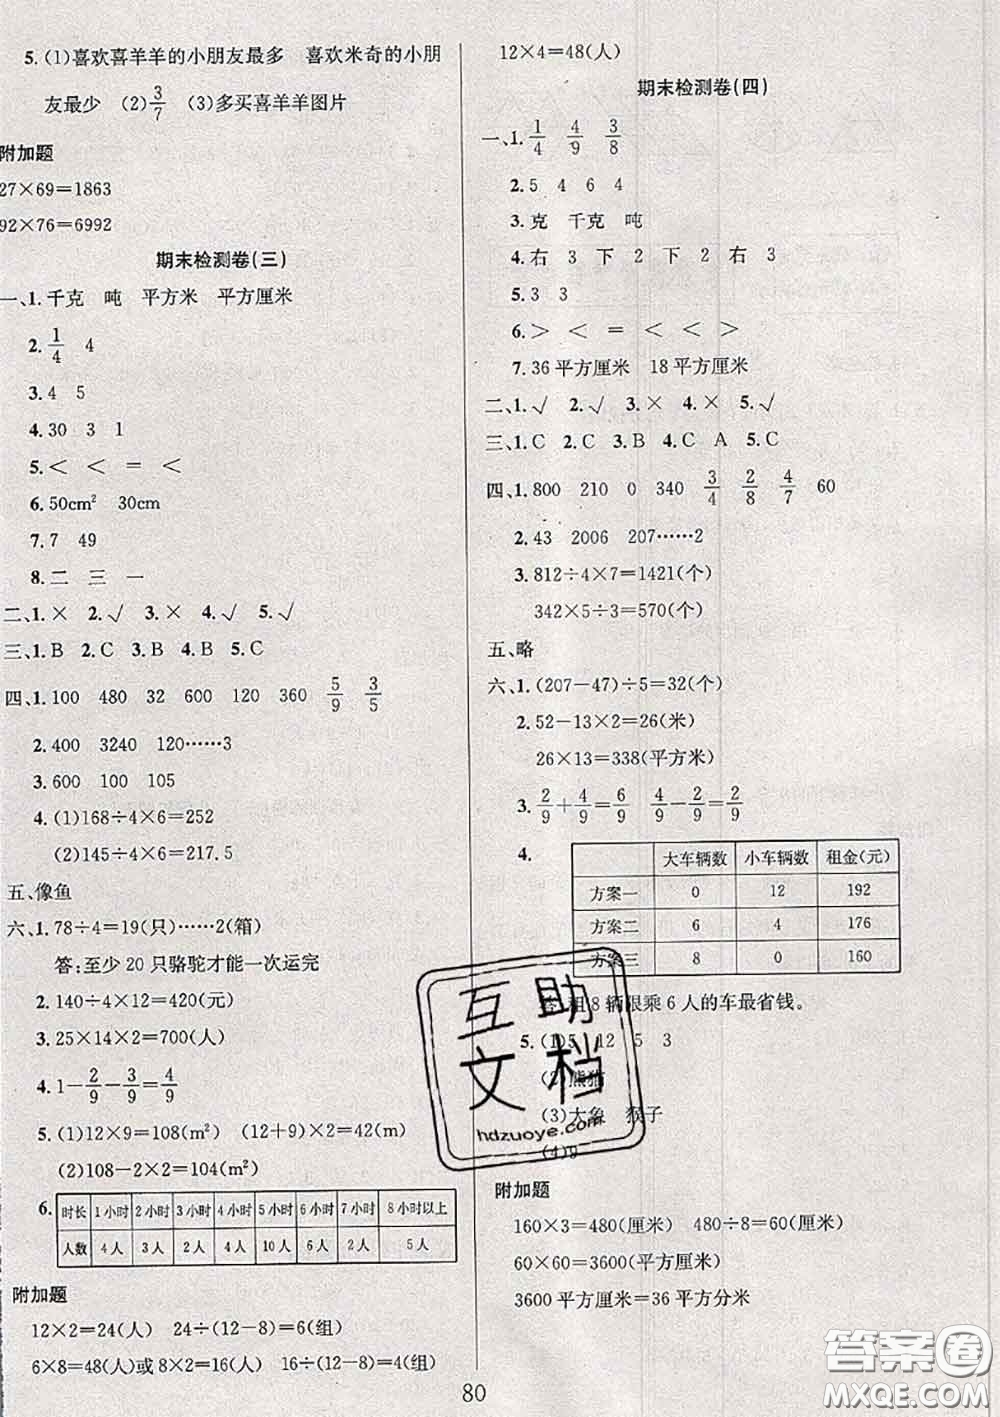 5.(1)喜欢喜羊羊的小朋友最多 喜欢米奇的小朋
友最少 (2)3/7 (3)多买喜羊羊图片
附加题
27×69=1863
92×76=6992
期末检测卷(三)
一、1.千克 吨 平方米 平方厘米
2.1/4 4
3.4 5
4.30 3 1
5.< < = <
6.50cm² 30cm
7.7 49
8.二 三 一
二、1.× 2.√ 3.× 4.√ 5.√
三、1.B 2.C 3.B 4.B 5.C
四、1.100 480 32 600 120 360 5/9 3/5
2.400 3240 120……3
3.600 100 105
4.(1)168÷4×6=252
(2)145÷4×6=217.5
五、像鱼
六、1.78÷4=19(只)……2(箱)
答:至少20只骆驼才能一次运完
2.140÷4×12=420(元)
3.25×14×2=700(人)
4.1-2/9-3/9=4/9
5.(1)12×9=108(m²) (12+9)×2=42(m)
(2)108-2×2=104(m²)
6.
时长 1小时 2小时 3小时 4小时 5小时 6小时 7小时 8小时以上
人数 4人 3人 2人 4人 10人 6人 2人 5人
附加题
12×2=24(人) 24÷(12-8)=6(组)
6×8=48(人)或8×2=16(人) 16÷(12-8)=4(组)
12×4=48(人)
期末检测卷(四)
一、1.1/4 4/9 3/8
2.5 4 6 4
3.克 千克 吨
4.右 3 下 2 下 2 右 3
5.3 3
6.> < = < < >
7.36平方厘米 18平方厘米
二、1.√ 2.√ 3.× 4.× 5.√
三、1.C 2.B 3.B 4.C A 5.C
四、1.800 210 0 340 3/4 2/8 4/7 60
2.43 2006 207……2
3.812÷4×7=1421(个)
342×5÷3=570(个)
五、略
六、1.(207-47)÷5=32(个)
2.52-13×2=26(米)
26×13=338(平方米)
3.2/9+4/9=6/9 4/9-2/9=2/9
4.
大车辆数 小车辆数 租金(元)
方案一 0 12 192
方案二 6 4 176
方案三 8 0 160
答:租8辆限乘6人的车最省钱。
5.(1)5 12 5 3
(2)熊猫
(3)大象 猴子
(4)9
附加题
160×3=480(厘米) 480÷8=60(厘米)
60×60=3600(平方厘米)
3600平方厘米=36平方分米
80
互助
文档
hdzuoye.com
答案圈
MXQE.COM